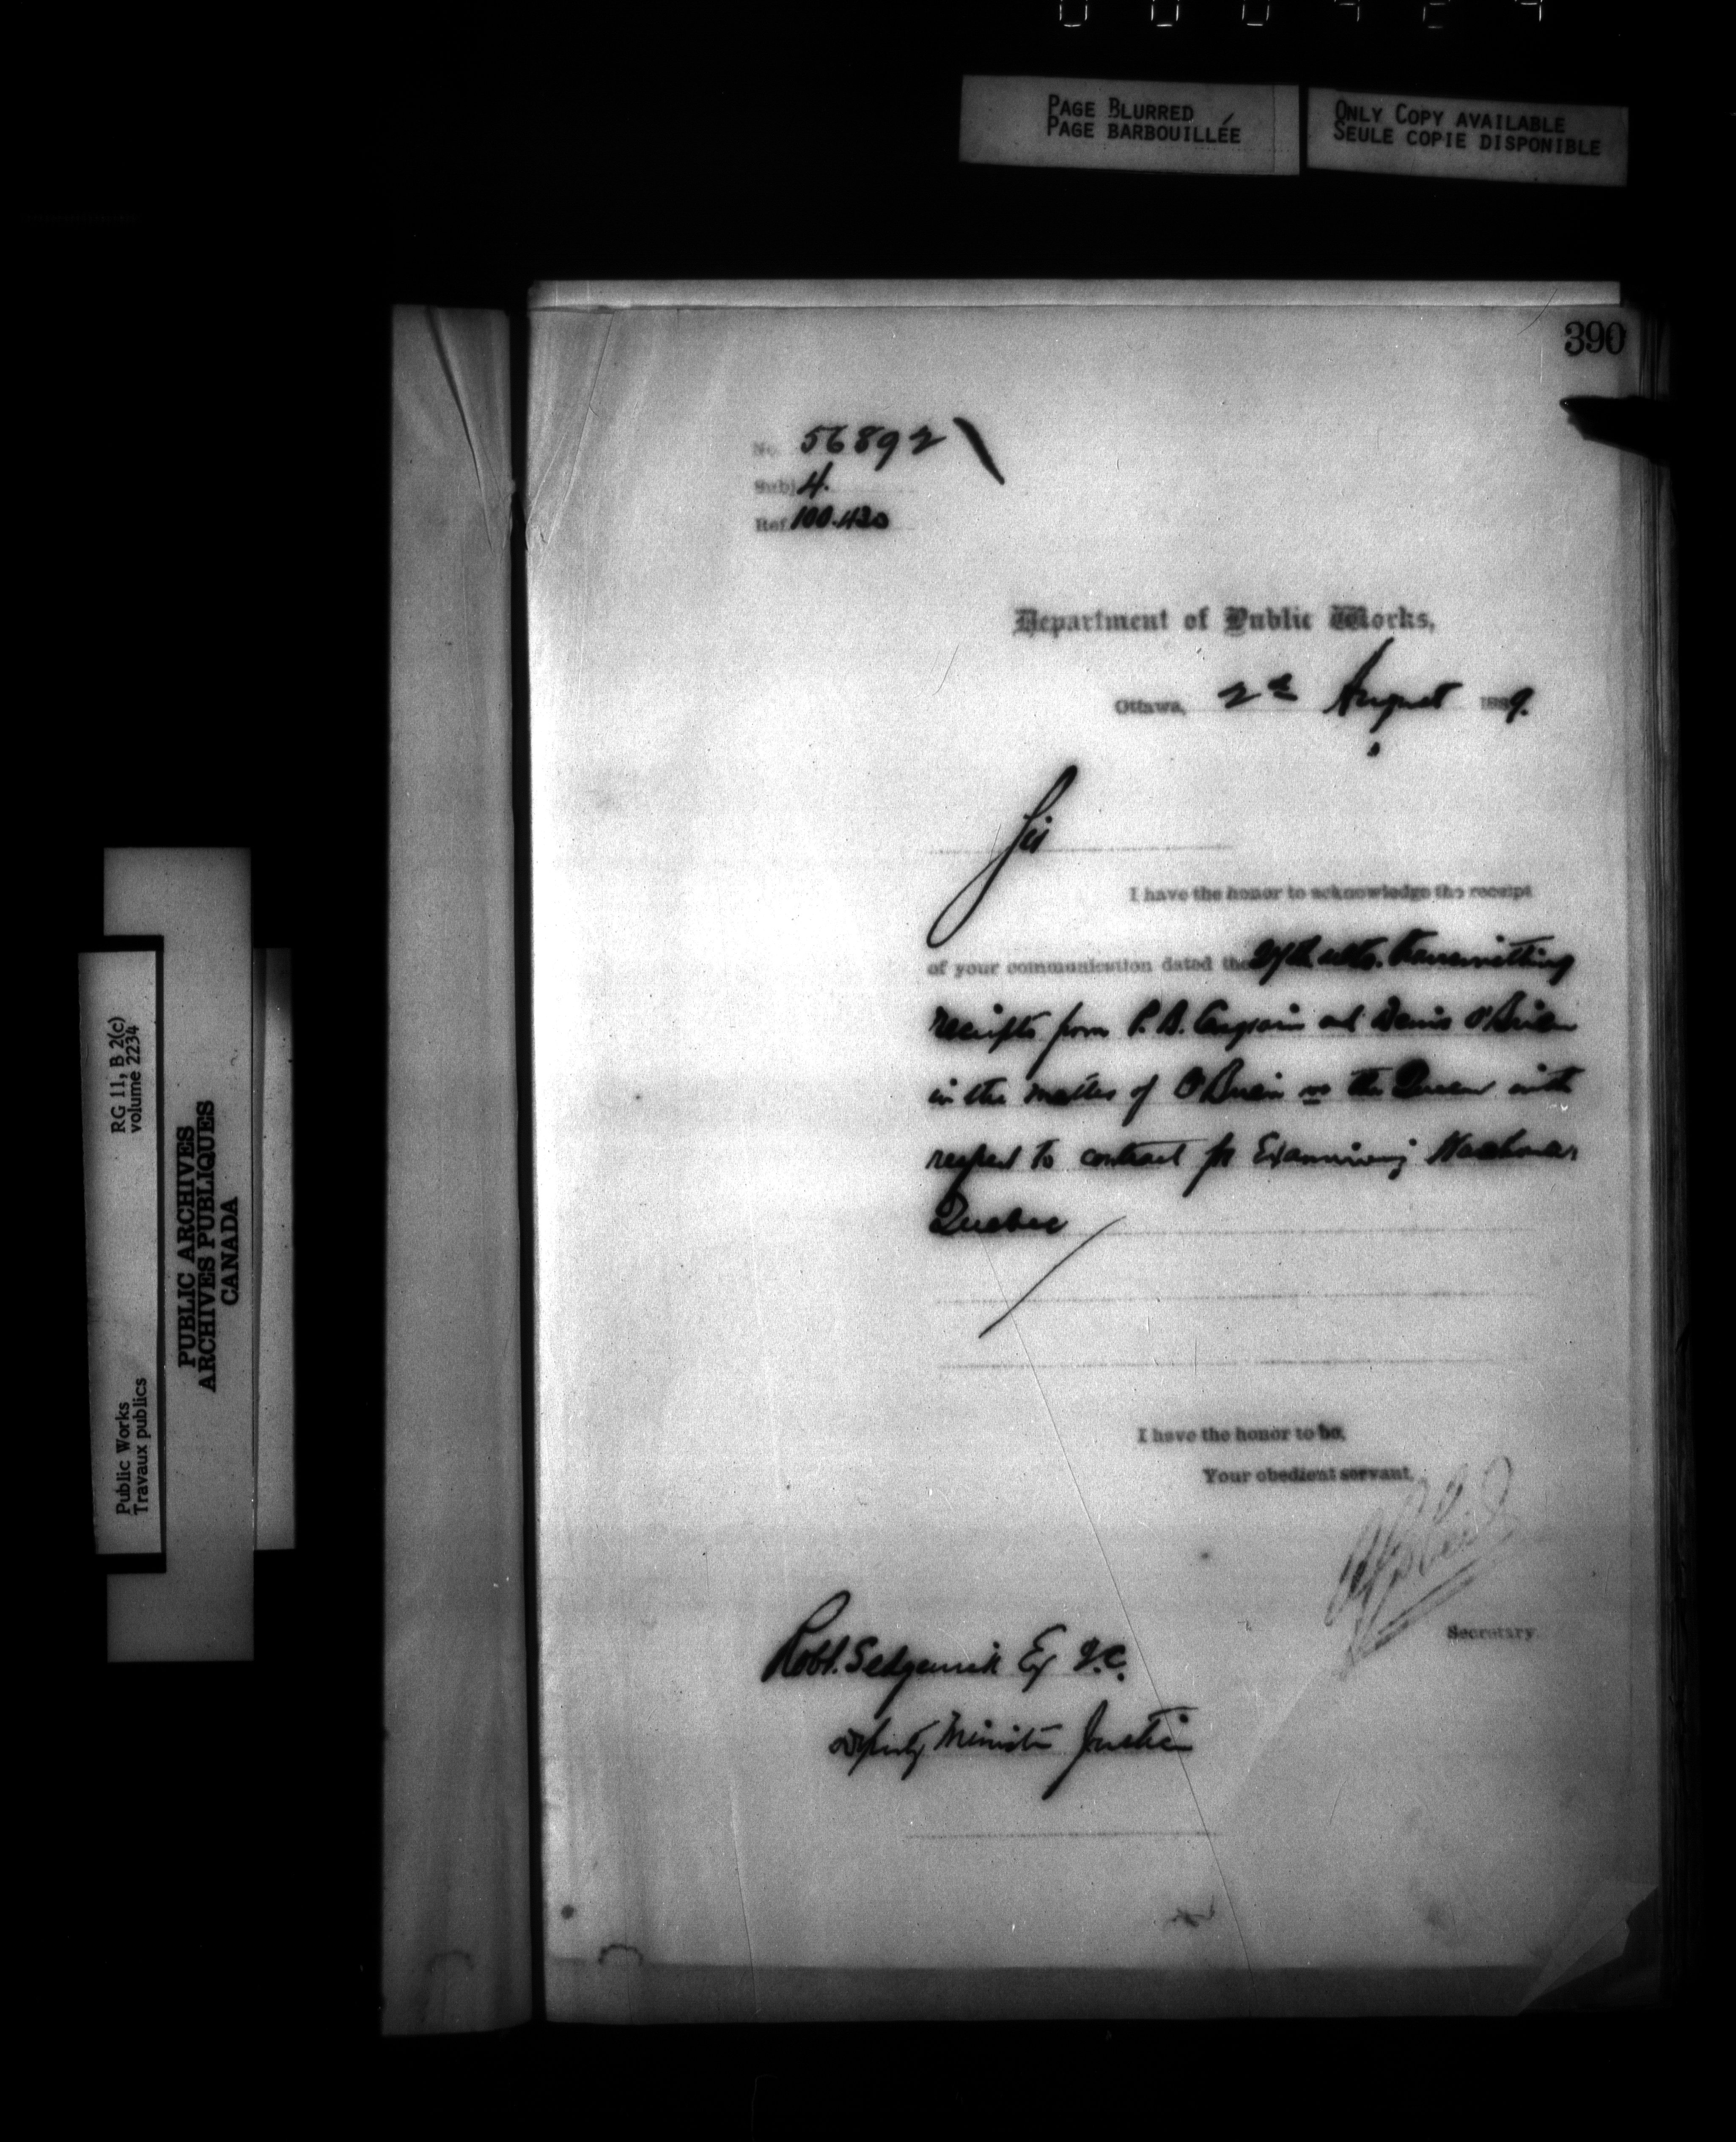 PAGE BLURRED
PAGE BARBOUILLÉE
ONLY COPY AVAILABLE
SEULE COPIE DISPONIBLE
390
No. 56892
Subj. 4.
Ref. 100.420
Department of Public Works,
Ottawa, 2d August 1889.
Sir
I have the honor to acknowledge the receipt
of your communication dated the 27th ulto. transmitting
receipts from P. B. Casgrain and Denis O'Brien
in the matter of O'Brien vs the Queen with
respect to contract for Examining Warehouse
Quebec
I have the honor to be,
Your obedient servant,
Secretary.
Robt. Sedgewick Esq Q.C.
Deputy Minister Justice
RG 11, B 2(c)
volume 2234
Public Works
Travaux publics
PUBLIC ARCHIVES
ARCHIVES PUBLIQUES
CANADA